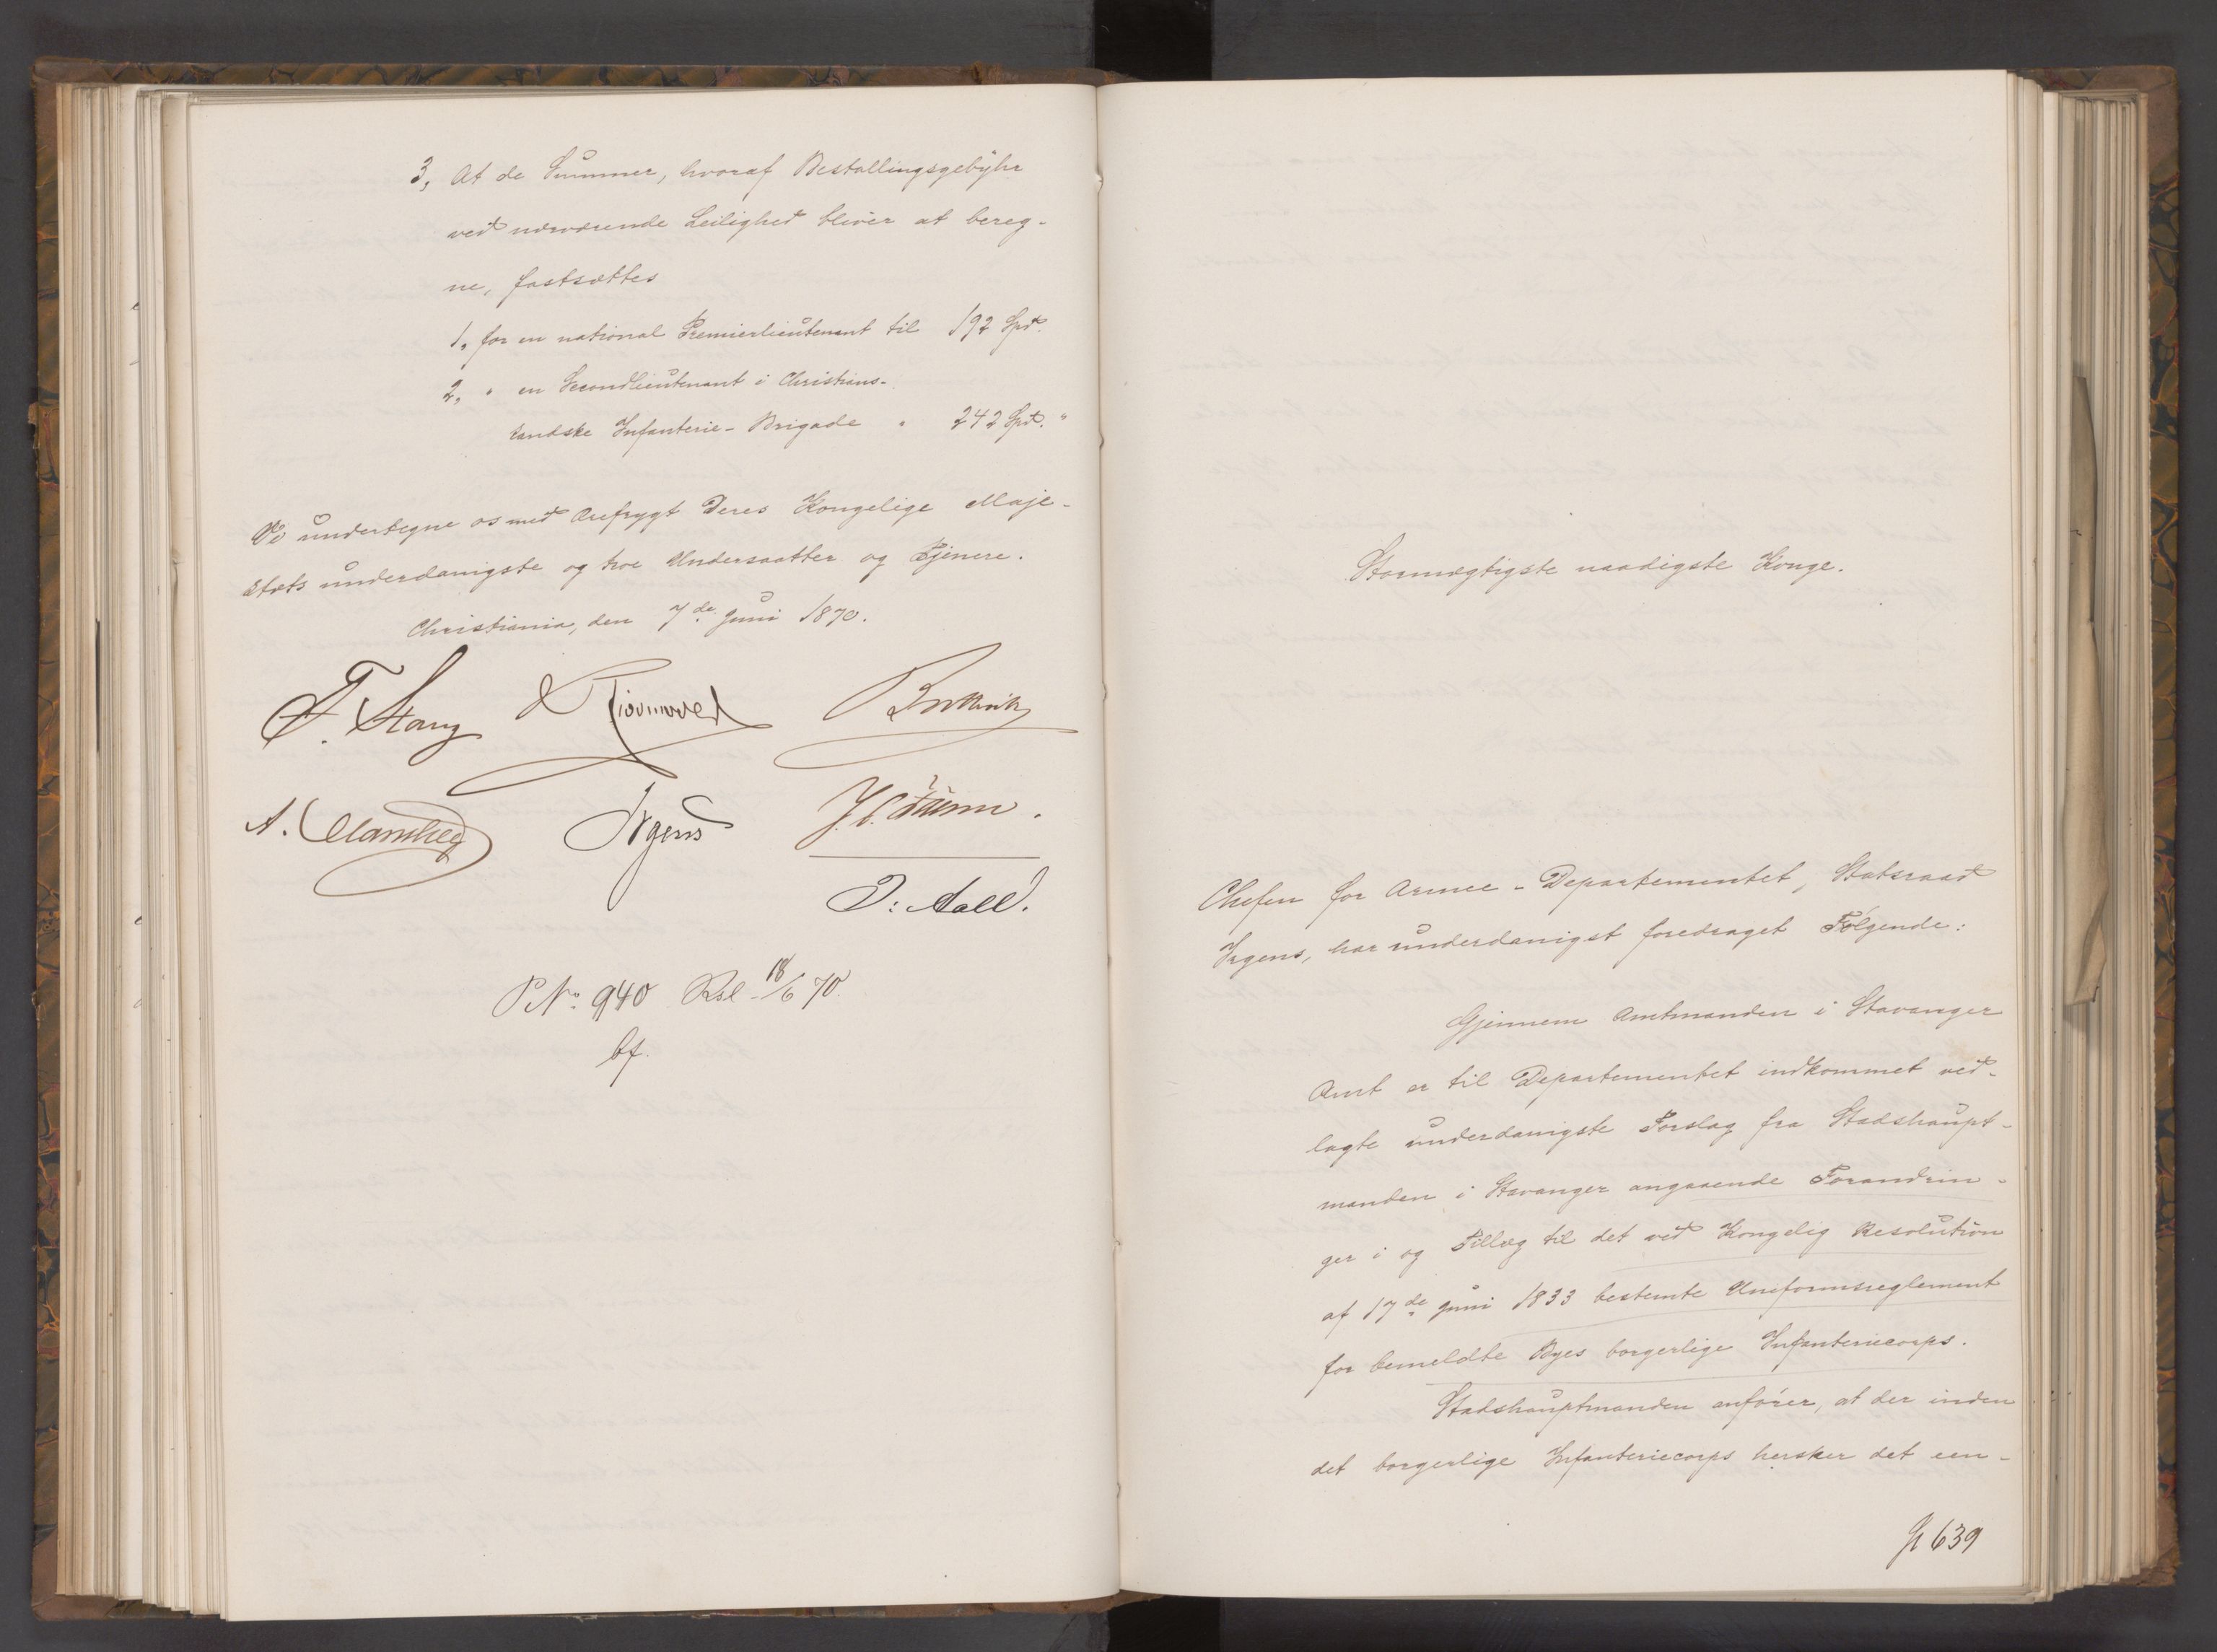 3, At de Summer, hvoraf Bestallingsgebyhr
ved nærværende Leilighed bliver at bereg-
ne, fastsættes
1, for en national Premierlieutenant til 192 Spd.
2, " en Secondlieutenant i Christians-
sandske Infanterie-Brigade " 242 Spd. "
Vi undertegne os med Ærefrygt Deres Kongelige Maje-
stæts underdanigste og troe Undersaatter og Tjenere.
Christiania, den 7de Juni 1870.
F. Stang
Bretteville
A. Manthey Irgens J. C. Falsen.
N. Aall.
P. No. 940 Rsl 18/6 70.
bf.
Stormægtigste naadigste Konge.
Chefen for Armee-Departementet, Statsraad
Irgens, har underdanigst foredraget Følgende:
Gjennem Amtmanden i Stavanger
Amt er til Departementet indkommet ved-
lagte underdanigste Forslag fra Stadshaupt-
manden i Stavanger angaaende Forandrin-
ger i og Tillæg til det ved Kongelig Resolution
af 17de Juni 1833 bestemte Uniformsreglement
for bemeldte Byes borgerlige Infanteriecorps.
Stadshauptmanden anfører, at der inden
det borgerlige Infanteriecorps hersker det een-
639